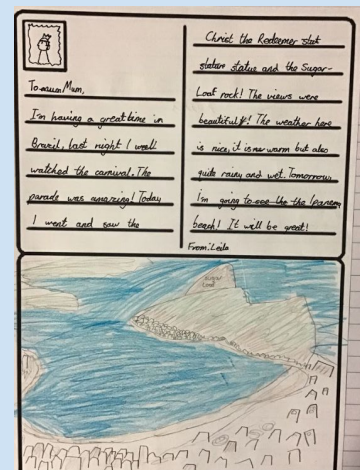 To Mum,
I'm having a great time in
Brazil, last night I
watched the carnival. The
parade was amazing! Today
I went and saw the
Christ the Redeemer
statue and the Sugar-
Loaf rock! The views were
beautiful! The weather here
is nice, it is warm but also
quite rainy and wet. Tomorrow,
I'm going to the Ipanema
beach! It will be great!
From: Leila
sugar
Loaf